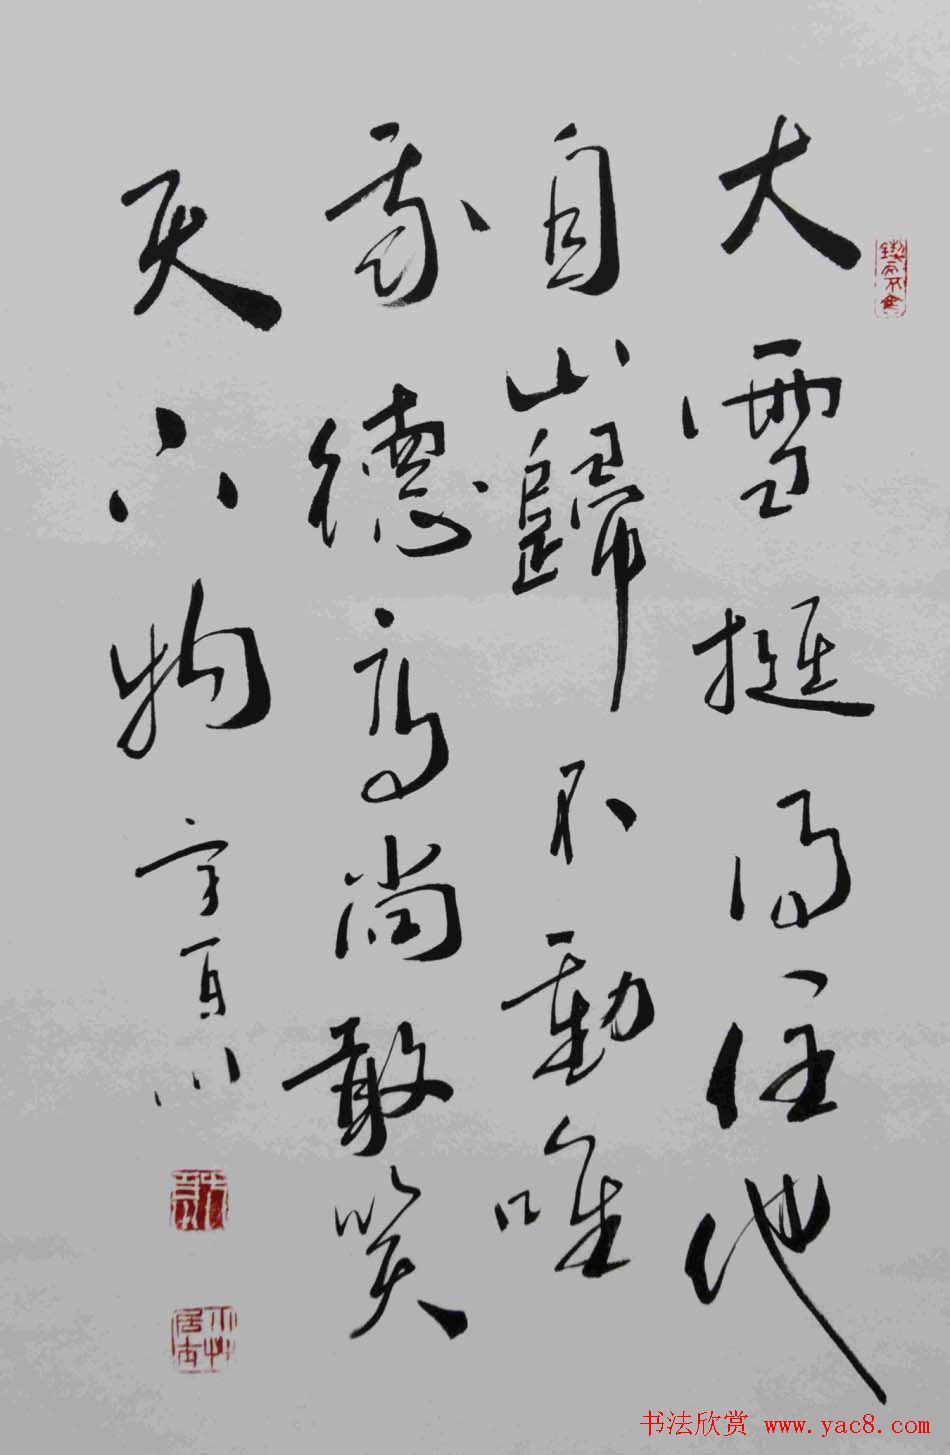 大雪挺得任他
自山歸不動唯
我德高尚敢笑
天下物
书法欣赏 www.yac8.com